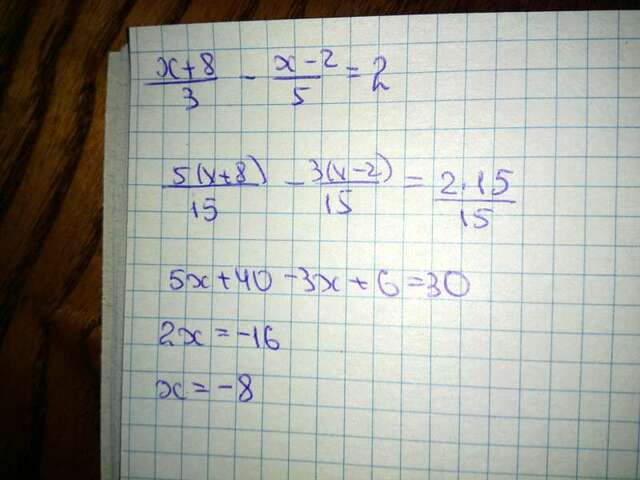 (x+8)/3 - (x-2)/5 = 2
5(x+8)/15 - 3(x-2)/15 = 2·15/15
5x+40-3x+6=30
2x=-16
x=-8